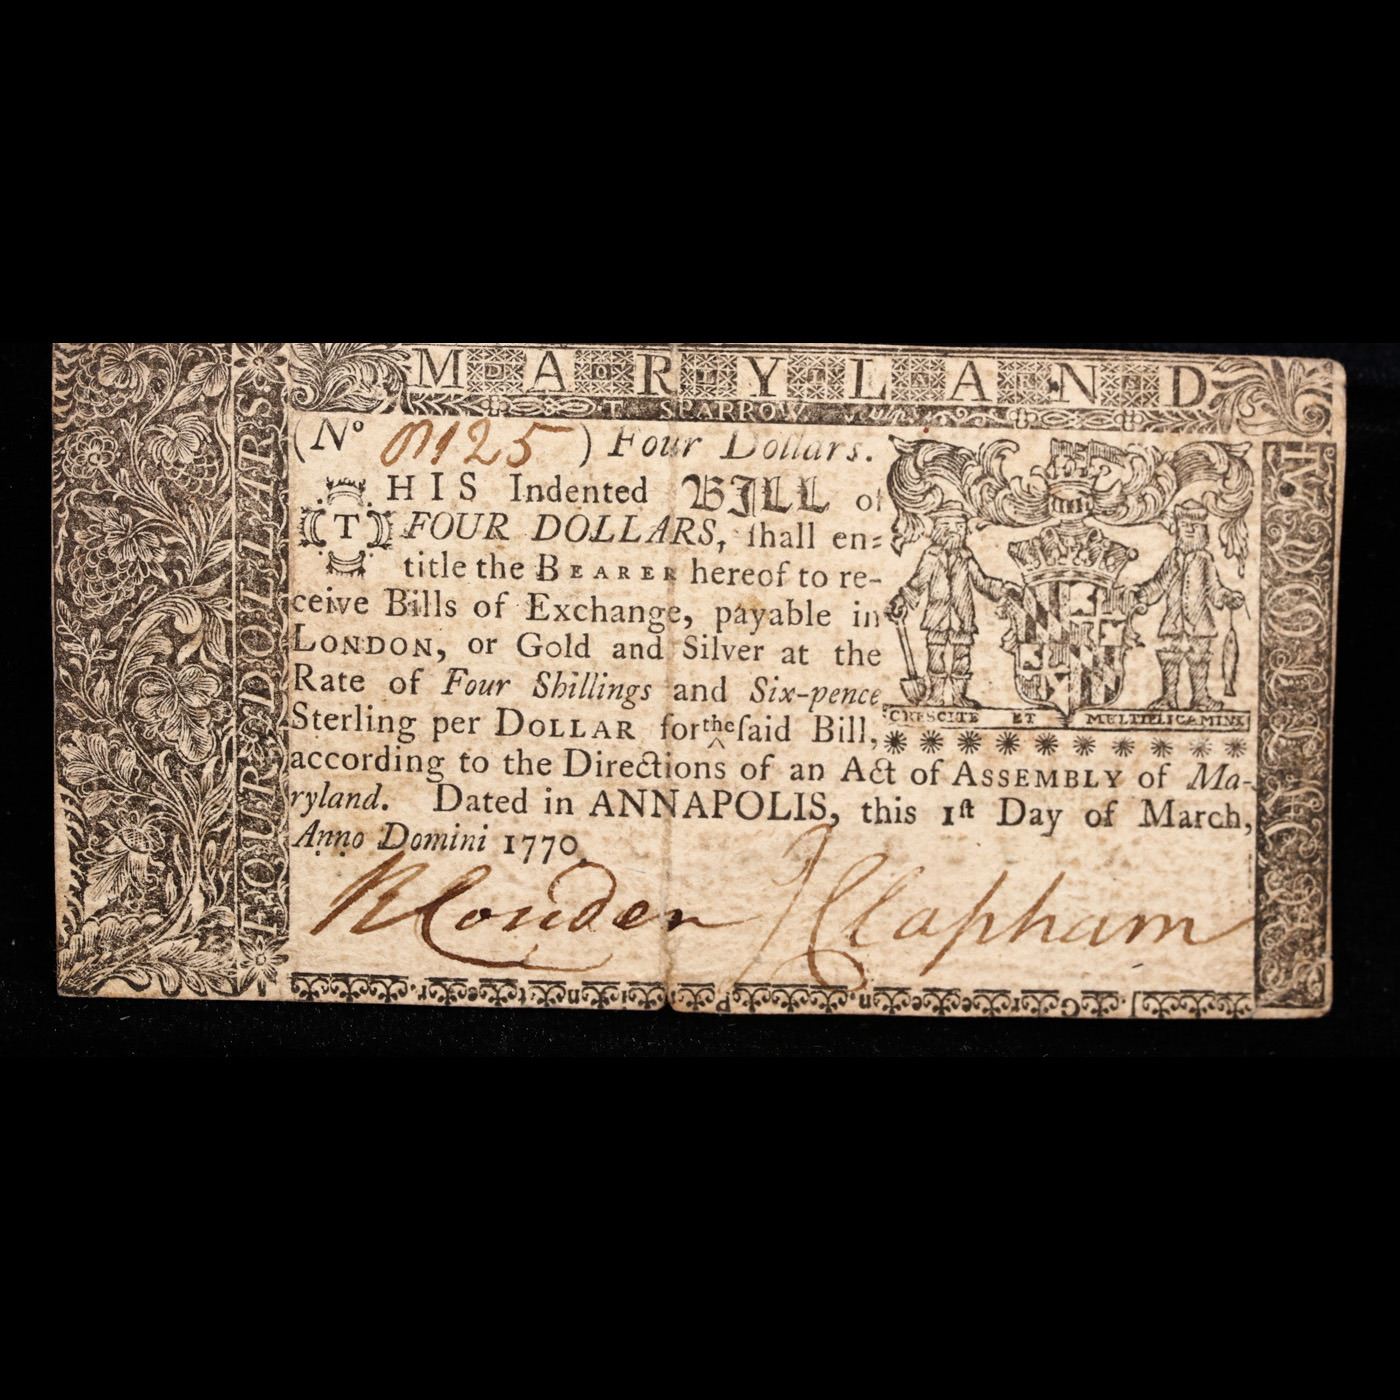 MARYLAND
T. SPARROW
(No m125) Four Dollars.
THIS Indented BILL of
FOUR DOLLARS, ſhall en=
title the BEARER hereof to re-
ceive Bills of Exchange, payable in
LONDON, or Gold and Silver at the
Rate of Four Shillings and Six-pence
Sterling per DOLLAR for the ſaid Bill,
according to the Directions of an Act of ASSEMBLY of Ma-
ryland. Dated in ANNAPOLIS, this 1ſt Day of March,
Anno Domini 1770.
CRESCITE ET MULTIPLICAMINI
J Clapham
FOUR DOLLARS